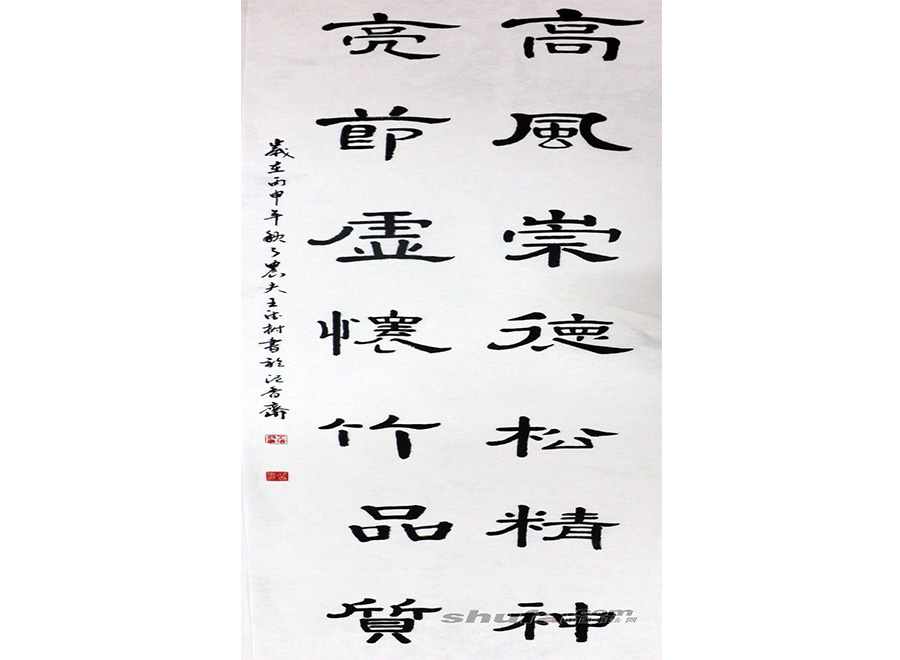 高風崇德松精神
亮節虛懷竹品質
歲在丙申年秋月農夫王法树書於沁香齋